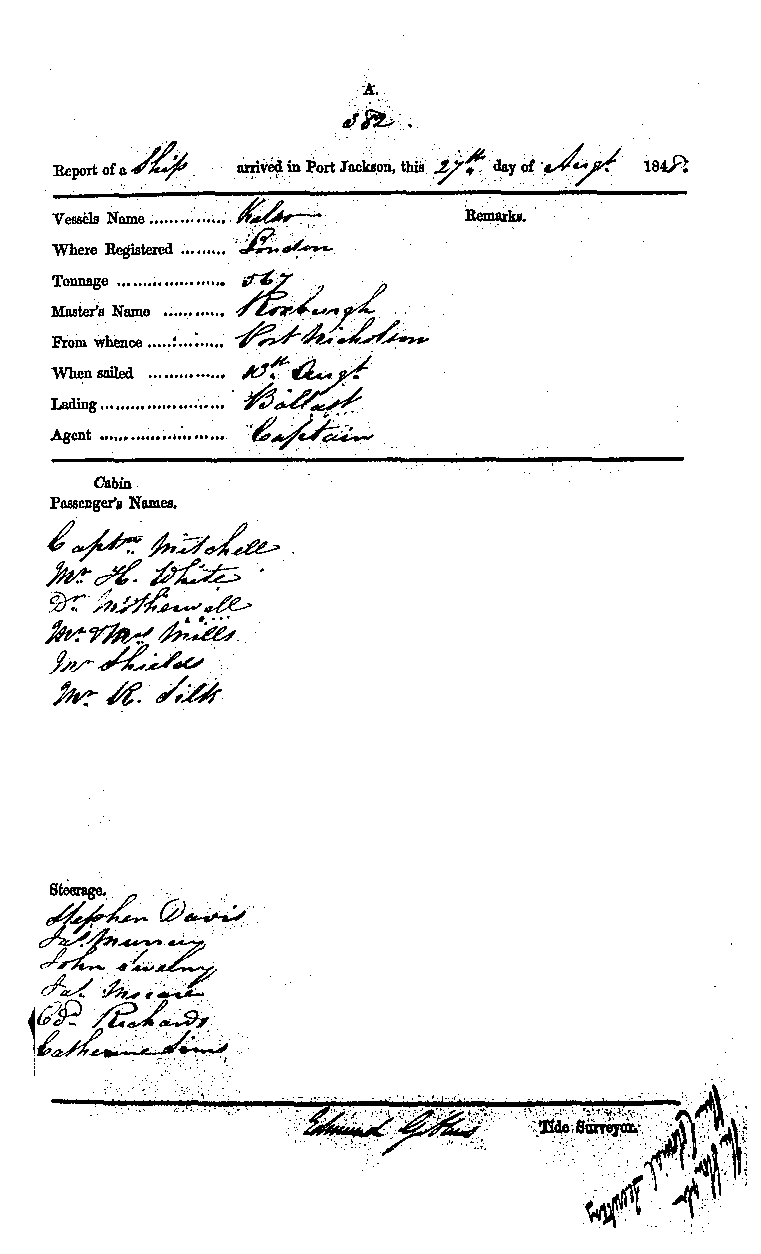 A.
382.
Report of a Ship arrived in Port Jackson, this 27th day of Augt. 1848.
Vessels Name .............. Kelso
Remarks.
Where Registered ......... London
Tonnage ..................... 567
Master's Name ............ Roxburgh
From whence ............... Port Nicholson
When sailed ............... 13th Augt.
Lading........................ Ballast
Agent ........................ Captain
Cabin
Passenger's Names.
Captn. Mitchell
Mr. H. White
Dr. Motherwell
Mr. & Mrs Mills
Mr Shields
Mr. R. Silk
Steerage.
Stephen Davis
Jas. Murray
John
Jas.
Ed. Richards
Catherine Sims
Edmund Tide Surveyor.
The Colonial Secretary